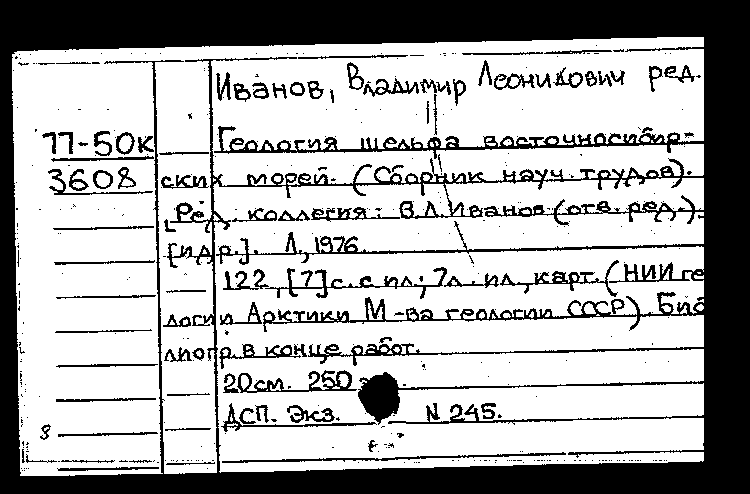 Иванов, Владимир Леонидович ред.
77-50к
3608
Геология шельфа восточносибир-
ских морей. (Сборник науч. трудов).
[Ред. коллегия: В.Л.Иванов (отв. ред.)
[и др.]. Л., 1976.
122, [7] с. с ил; 7л. ил, карт. (НИИ ге
логии Арктики М-ва геологии СССР) Биб
лиогр. в конце работ.
20см. 250
ДСП. Экз. N 245.
8